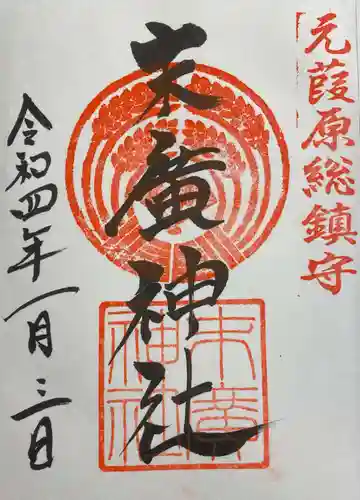 元葭原総鎮守
末廣神社
末廣神社
令和四年一月三日